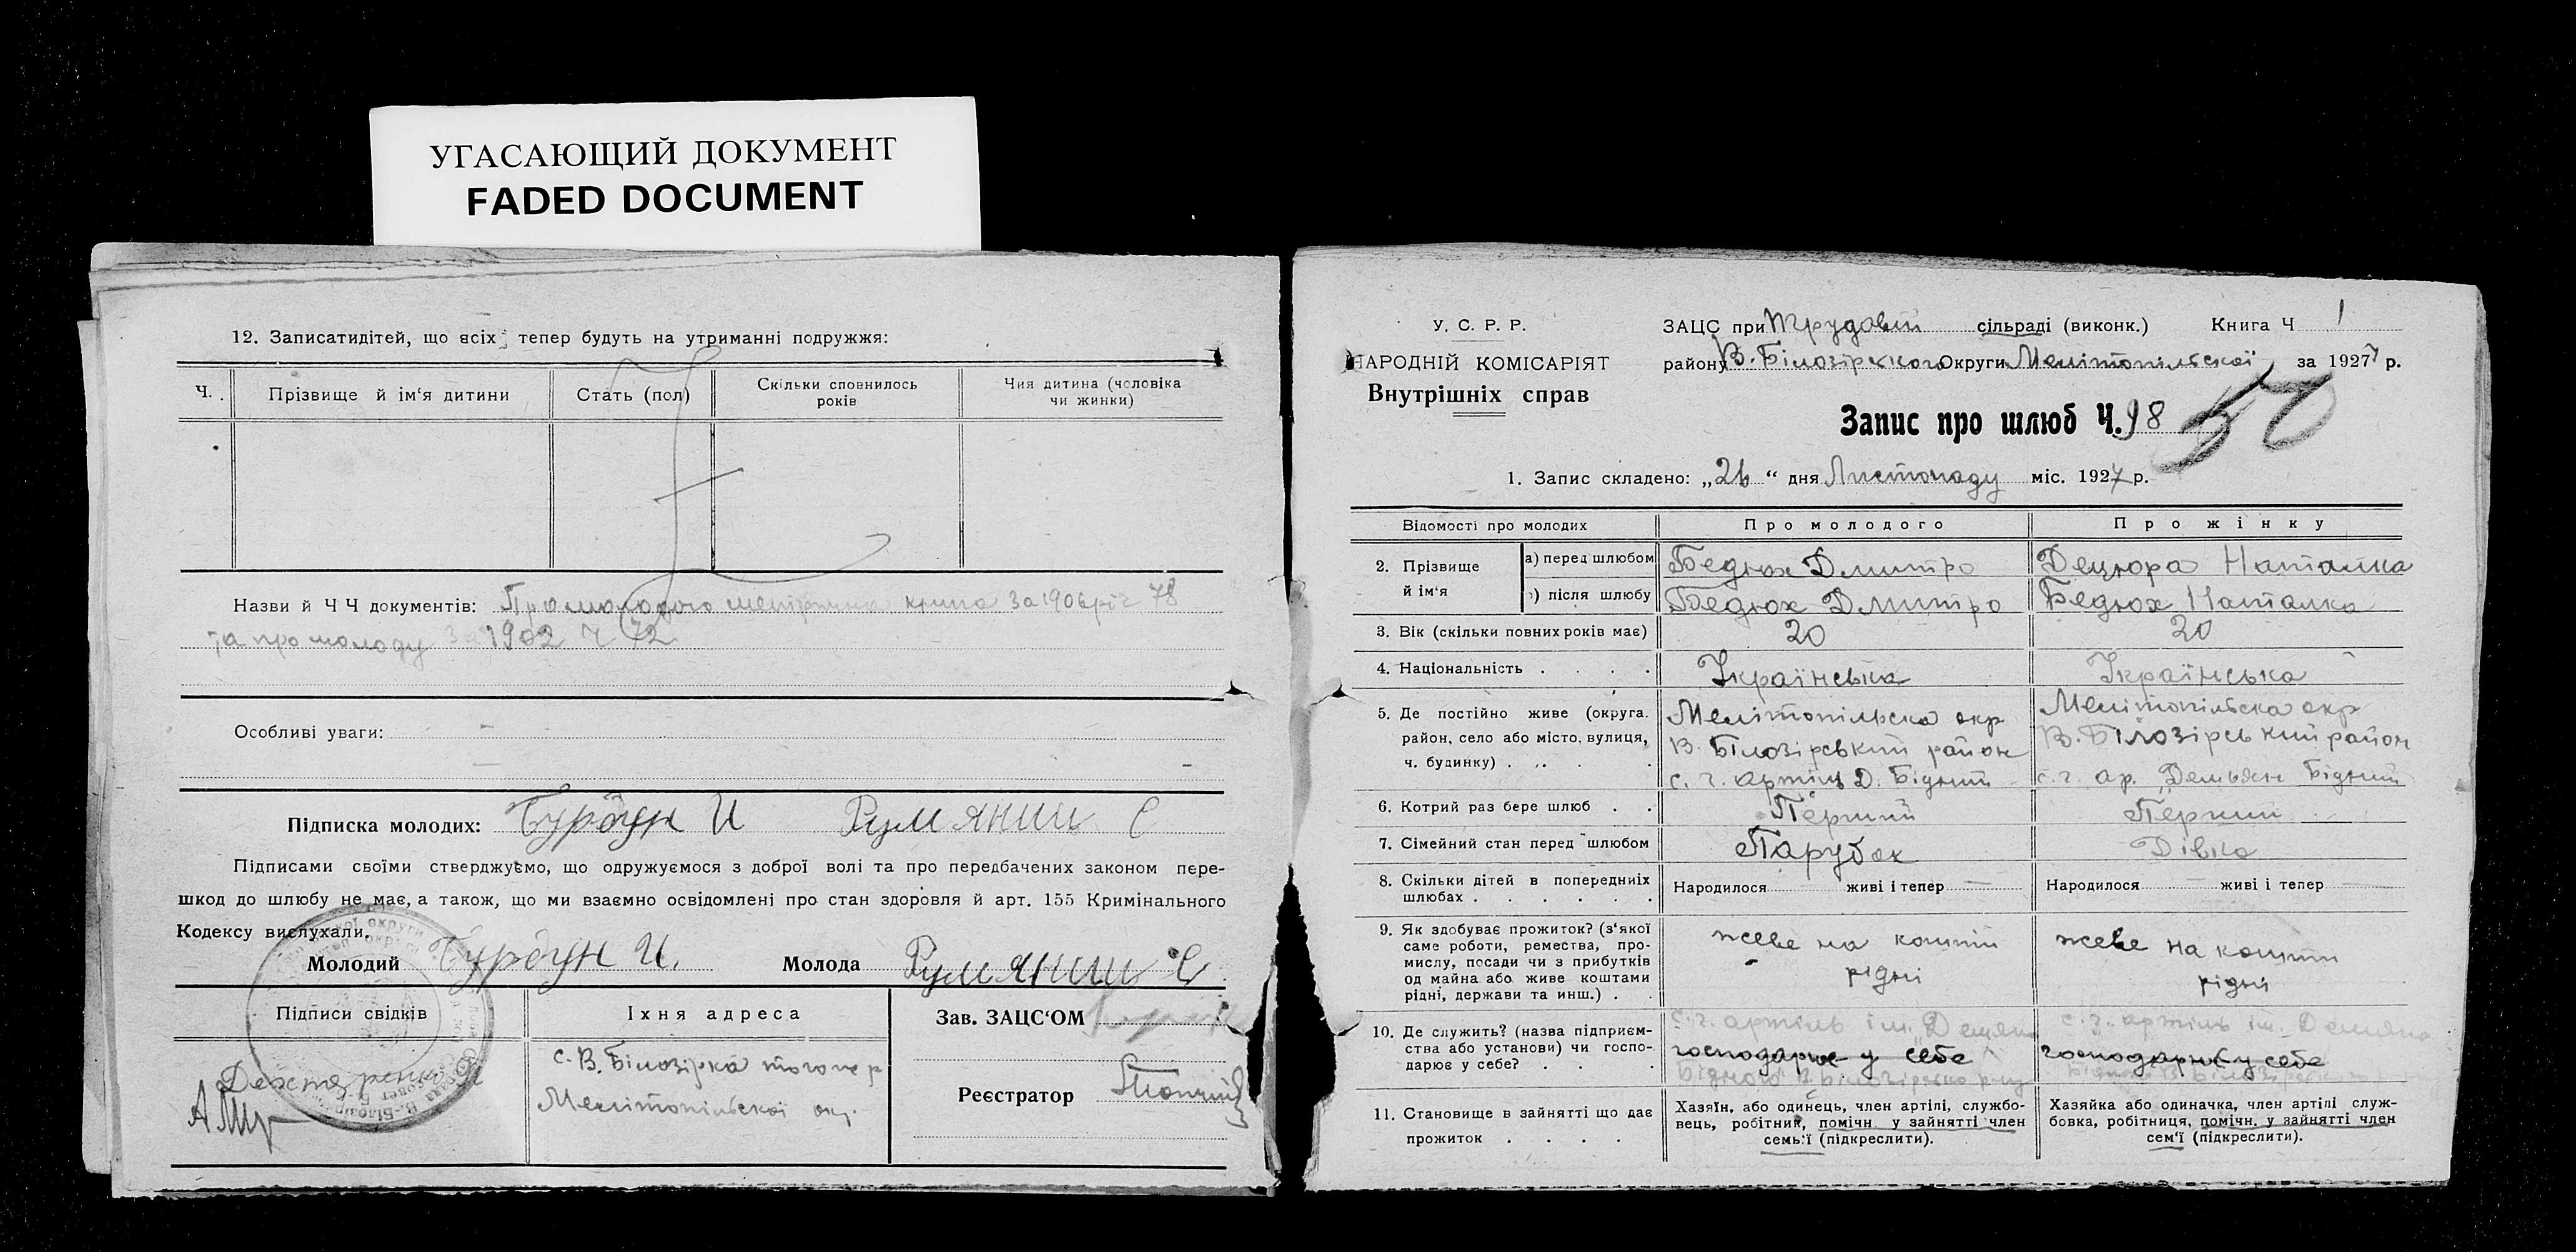 УГАСАЮЩИЙ ДОКУМЕНТ
FADED DOCUMENT
12. Записатидітей, що всіх тепер будуть на утриманні подружжя:
Ч. Прізвище й ім'я дитини Стать (пол) Скільки сповнилось років Чия дитина (чоловіка чи жинки)
Назви й Ч Ч документів: Про молодого метрична 1906 78
та про молоду за 1902 Ч 72
Особливі уваги: —
Підписка молодих: Бурдун И Румянии Є
Підписами своїми стверджуємо, що одружуємося з доброї волі та про передбачених законом пере-
шкод до шлюбу не має, а також, що ми взаємно освідомлені про стан здоровля й арт. 155 Кримінального
Кодексу вислухали.
Молодий Бурдун И. Молода Румянии Є
Підписи свідків Їхня адреса Зав. ЗАЦС'ОМ
с. В. Білозірка
Мелітопільскої
Реєстратор
У. С. Р. Р.
НАРОДНІЙ КОМІСАРІЯТ
Внутрішніх справ
ЗАЦС при Трудовій сільраді (виконк.) Книга Ч 1
району В. Білозірского округи Мелітопільскої за 1927 р.
Запис про шлюб Ч. 98 50
1. Запис складено: „26“ дня Листопаду міс. 1927 р.
Відомості про молодих Про молодого Про жінку
2. Прізвище й ім'я а) перед шлюбом Бедюх Дмитро Децюра Наталка
б) після шлюбу Бедюх Дмитро Бедюх Наталка
3. Вік (скільки повних років має) 20 20
4. Національність . . . . Українська Українська
5. Де постійно живе (округа. Мелітопільска окр Мелітопільска окр
район, село або місто, вулиця, В. Білозірський район В. Білозірський район
ч. будинку) . . . . с. г. артіль Д. Бідний с. г. ар. Демьян Бідний
6. Котрий раз бере шлюб . . Перший Перший
7. Сімейний стан перед шлюбом Парубок Дівка
8. Скільки дітей в попередниіх Народилося — живі і тепер — Народилося — живі і тепер —
шлюбах . . . . . .
9. Як здобуває прожиток? (з'якої
саме роботи, ремества, про- жеве на кошти жеве на кошти
мислу, посади чи з прибутків
од майна або живе коштами рідні рідні
рідні, держави та инш.) . .
10. Де служить? (назва підприєм- с. г. артіль ім. Демяна с. г. артіль ім. Демяна
ства або установи) чи госпо- господарює у себе господарює у себе
дарює у себе? . . . Бідного В. Білозірсько Бідного В. Білозірсько
11. Становище в зайнятті що дає Хазяїн, або одинець, член артілі, службо- Хазяйка або одиначка, член артілі служ-
прожиток . . . . вець, робітник, помічн. у зайнятті член бовка, робітниця, помічн. у зайнятті член
семьї (підкреслити). сем'ї (підкреслити).